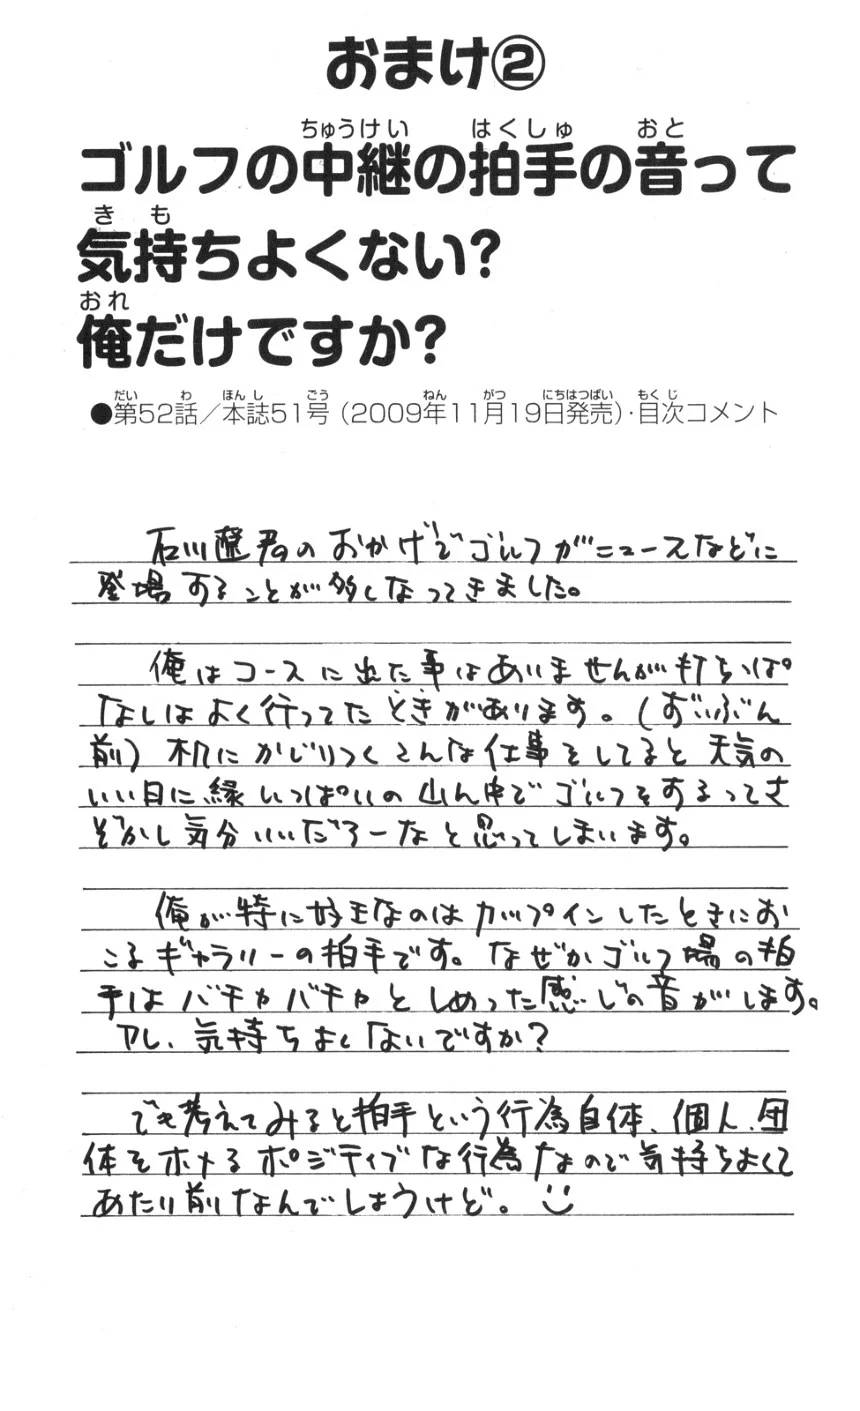 おまけ②
ゴルフの中継の拍手の音って
気持ちよくない?
俺だけですか?
●第52話／本誌51号(2009年11月19日発売)・目次コメント
石川遼君のおかげでゴルフがニュースなどに
登場することが多くなってきました。
俺はコースに出た事はありませんが打ちっぱ
なしはよく行ってたときがあります。(ずいぶん
前) 机にかじりつくこんな仕事をしてると天気の
いい日に緑いっぱいの山ん中でゴルフをするってさ
ぞかし気分いいだろーなと思ってしまいます。
俺が特に好きなのはカップインしたときにお
こるギャラリーの拍手です。なぜかゴルフ場の拍
手はバチャバチャとしめった感じの音がします。
アレ、気持ちよくないですか?
でも考えてみると拍手という行為自体、個人、団
体をホメるポジティブな行為なので気持ちよくて
あたり前なんでしょうけど。